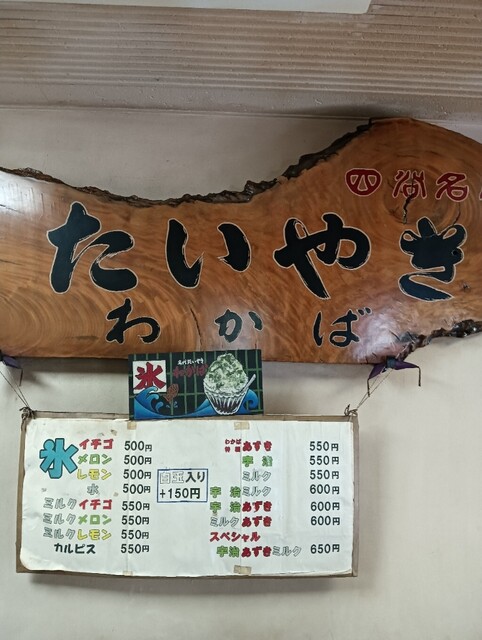 四谷名
たいやき
わかば
氷
わかば
氷
イチゴ 500円
メロン 500円
レモン 500円
氷 500円
ミルクイチゴ 550円
ミルクメロン 550円
ミルクレモン 550円
カルピス 550円
白玉入り
+150円
わかば特選 あずき 550円
宇治 550円
ミルク 550円
宇治ミルク 600円
宇治あずき 600円
ミルクあずき 600円
スペシャル
宇治あずきミルク 650円